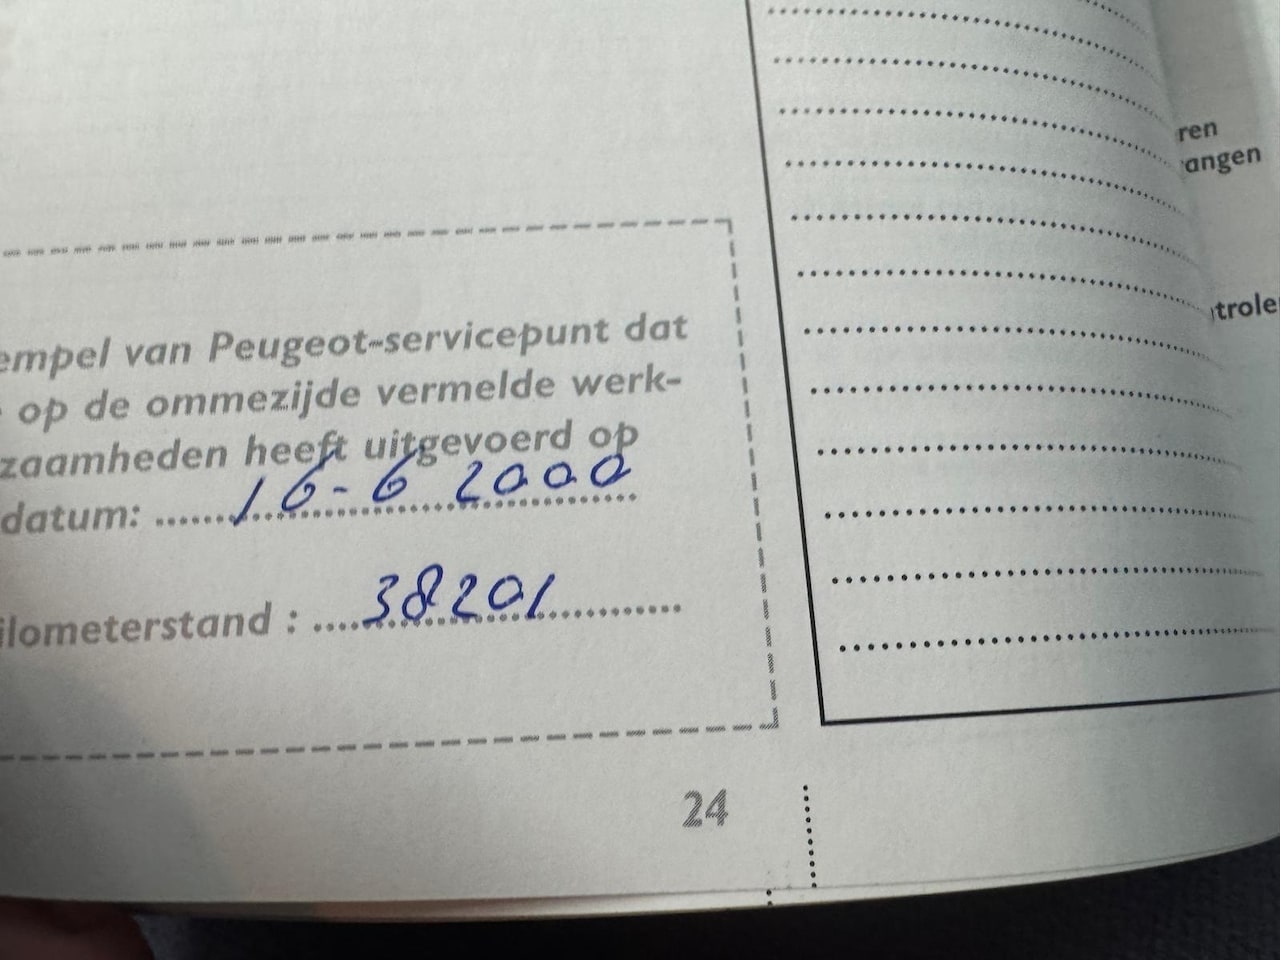 empel van Peugeot-servicepunt dat
op de ommezijde vermelde werk-
zaamheden heeft uitgevoerd op
datum: 16-6 2000
ilometerstand : 38201
24
ren
angen
trole